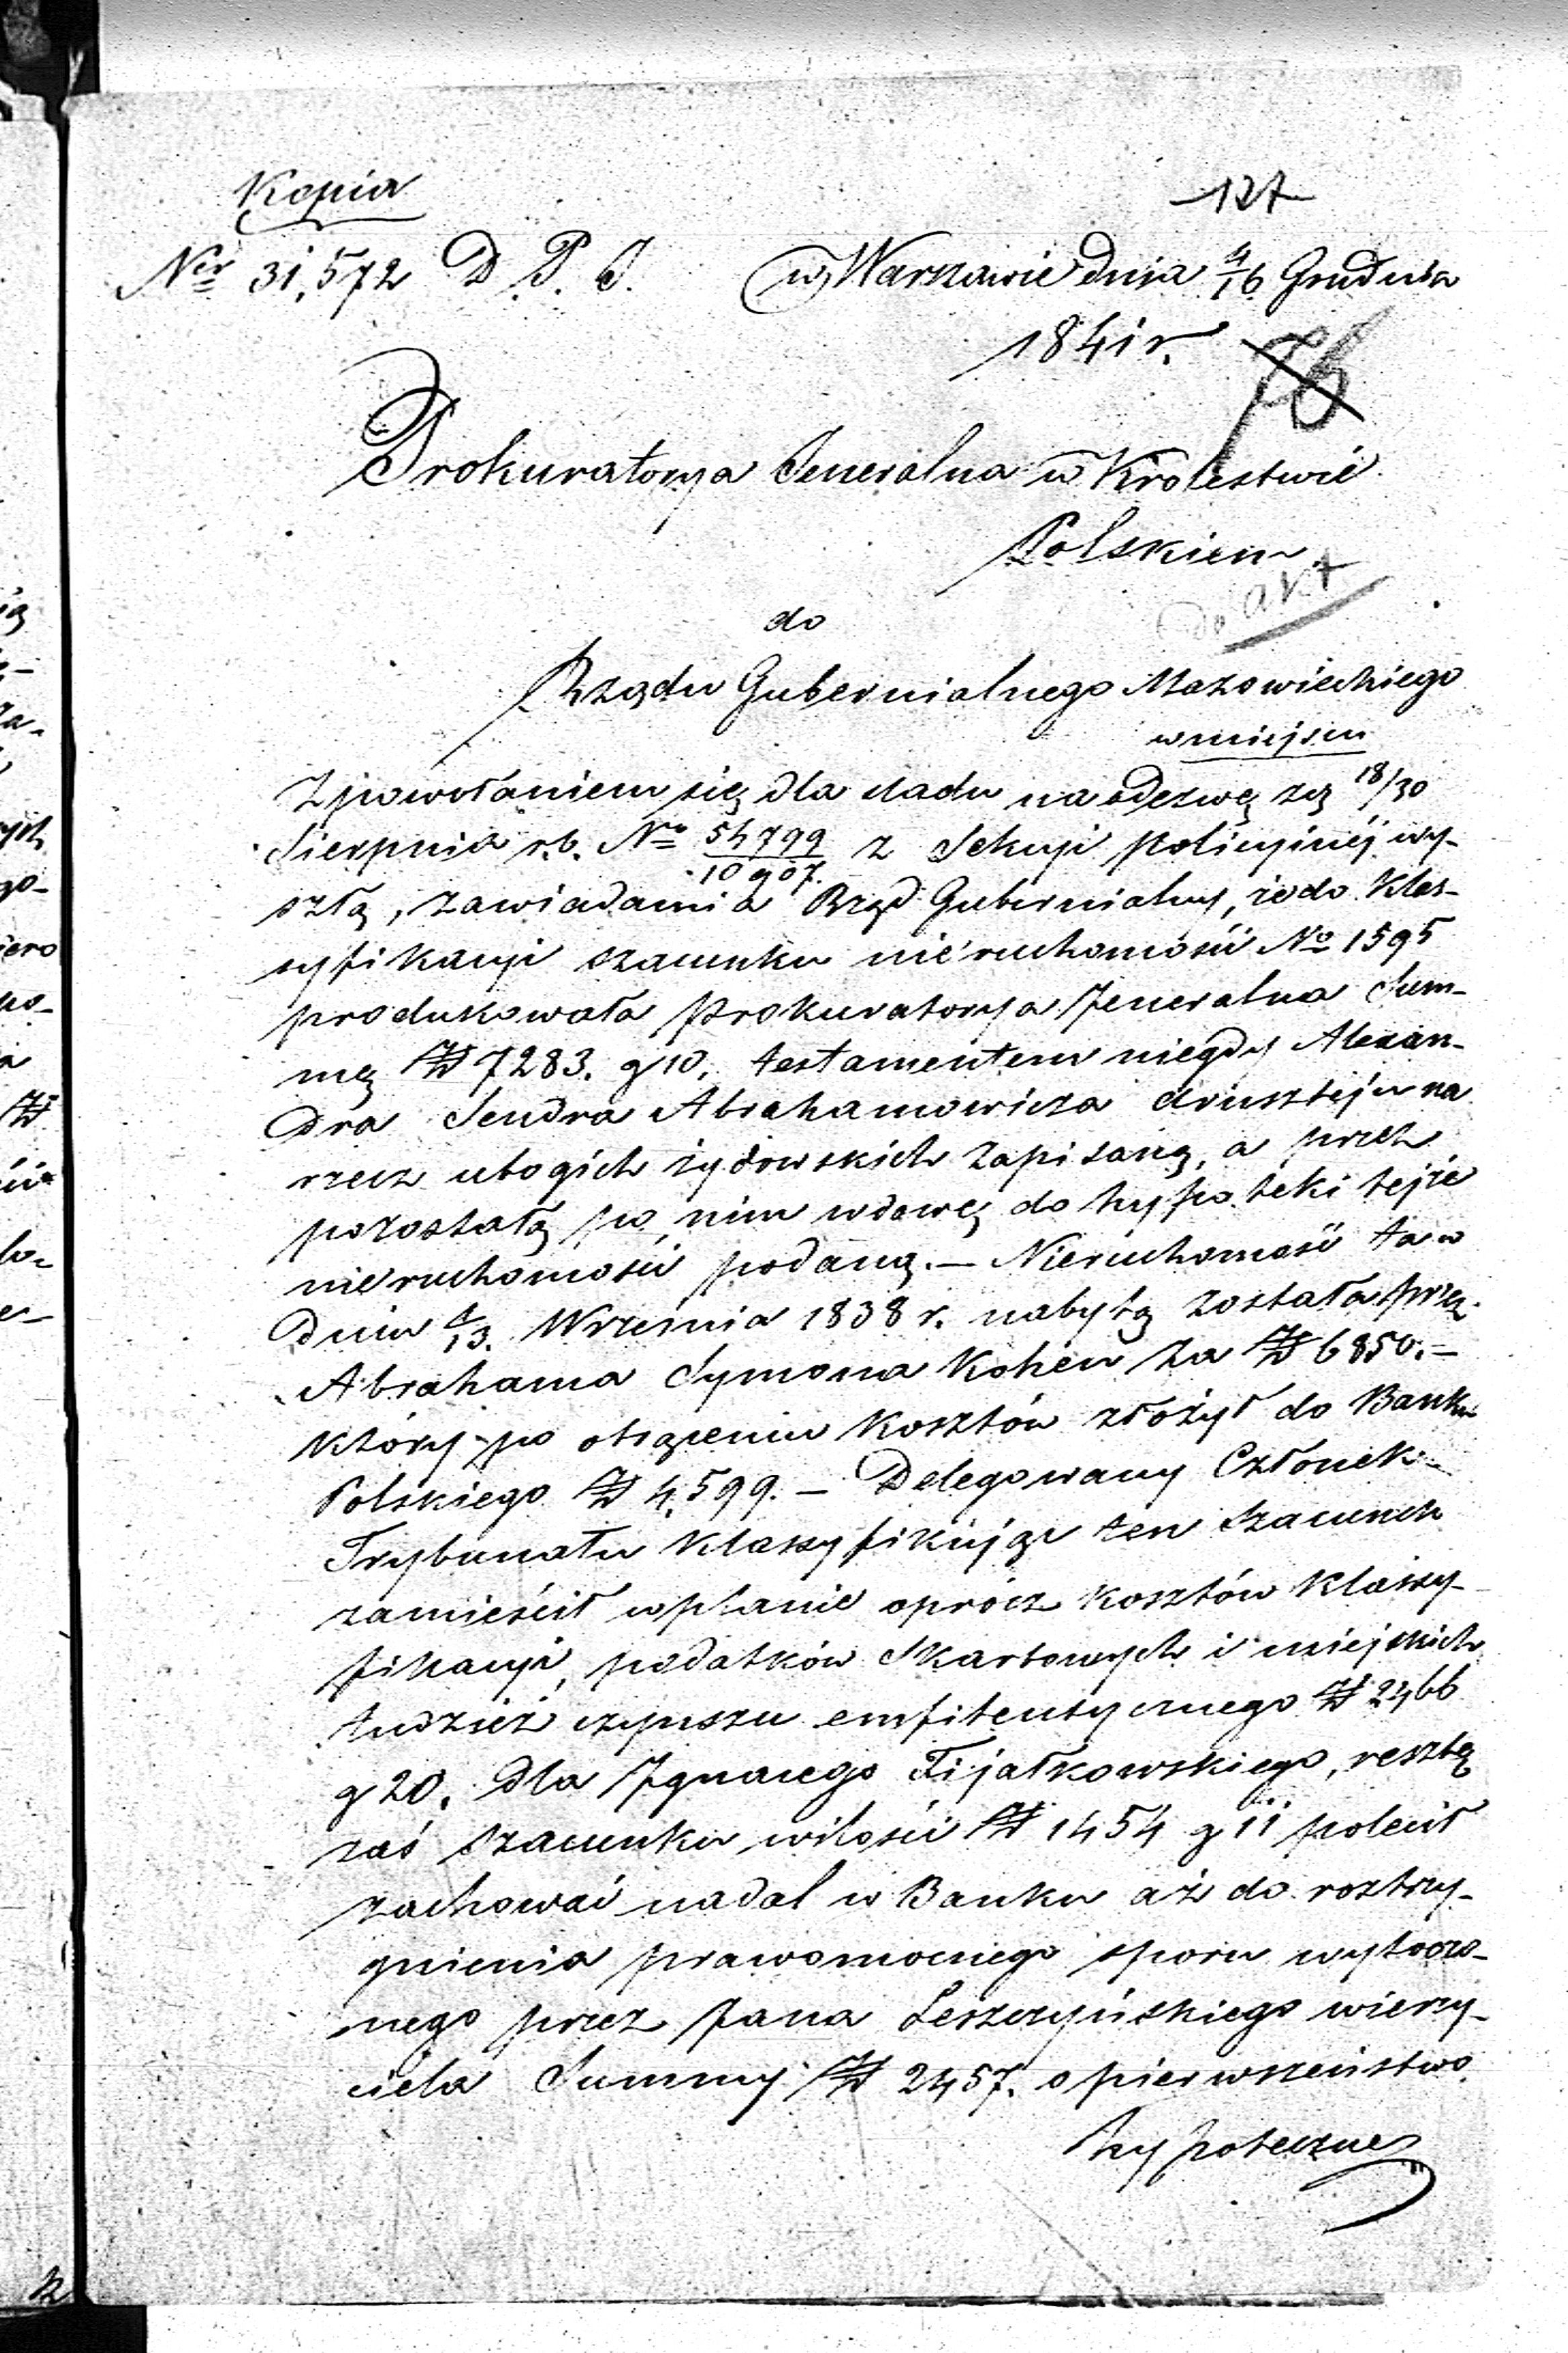 Kopia
127
Nr 31,572 D. P. J. w Warszawie dnia 4/16 Grudnia
1841 r.
76
Prokuratorya Jeneralna w Królestwie
Polskiem
do akt
do
Rządu Gubernialnego Mazowieckiego
w miejscu
Z powołaniem się dla śladu na odezwę z d. 18/30
Sierpnia r.b. No 54799/10907. z Sekcyi policyinéj wy-
szłą, zawiadamia Rząd Gubernialny, że do Klas-
syfikacyi szacunku nieruchomości No 1595
produkowała Prokuratorya Jeneralna Sum-
mę Zł 7283. g 10, testamentem niegdy Alexan-
dra Sendra Abrahamowicza na
rzecz ubogich żydowskich zapisaną, a przez
pozostałą po nim wdowę do hypoteki tejże
nieruchomości podaną. — Nieruchomość ta w
dniu 1/13. Września 1838 r. nabytą została przez
Abrahama Symona Kohen za Zł 6850. —
który po otrąceniu Kosztów złożył do Banku
Polskiego Zł 4,599. — Delegowany Członek
Trybunału Klassyfikując ten szacunek
zamieścił w planie oprócz kosztów klassy-
fikacyi, podatków Skarbowych i miejskich
tudzież czynszu emfiteutycznego Zł 2466
g 20. dla Ignacego Fijałkowskiego, resztę
zaś szacunku w ilości Zł 1454 g 11 polecił
zachować nadal w Banku aż do roztrzy-
gnienia prawomocnego sporu wytoczo-
nego przez Jana Leszczyńskiego wierzy-
ciela Summy Zł 2457. o pierwszeństwo
hypoteczne